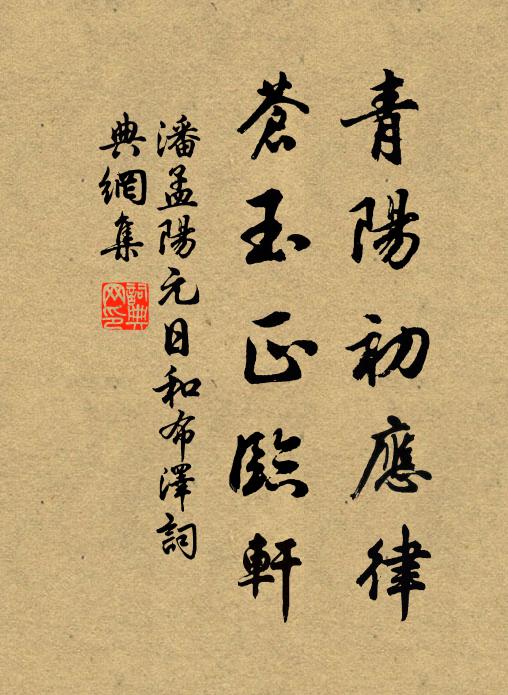 青陽初應律
蒼玉正臨軒
潘孟陽元日和布澤詞
典網集
詞典網印